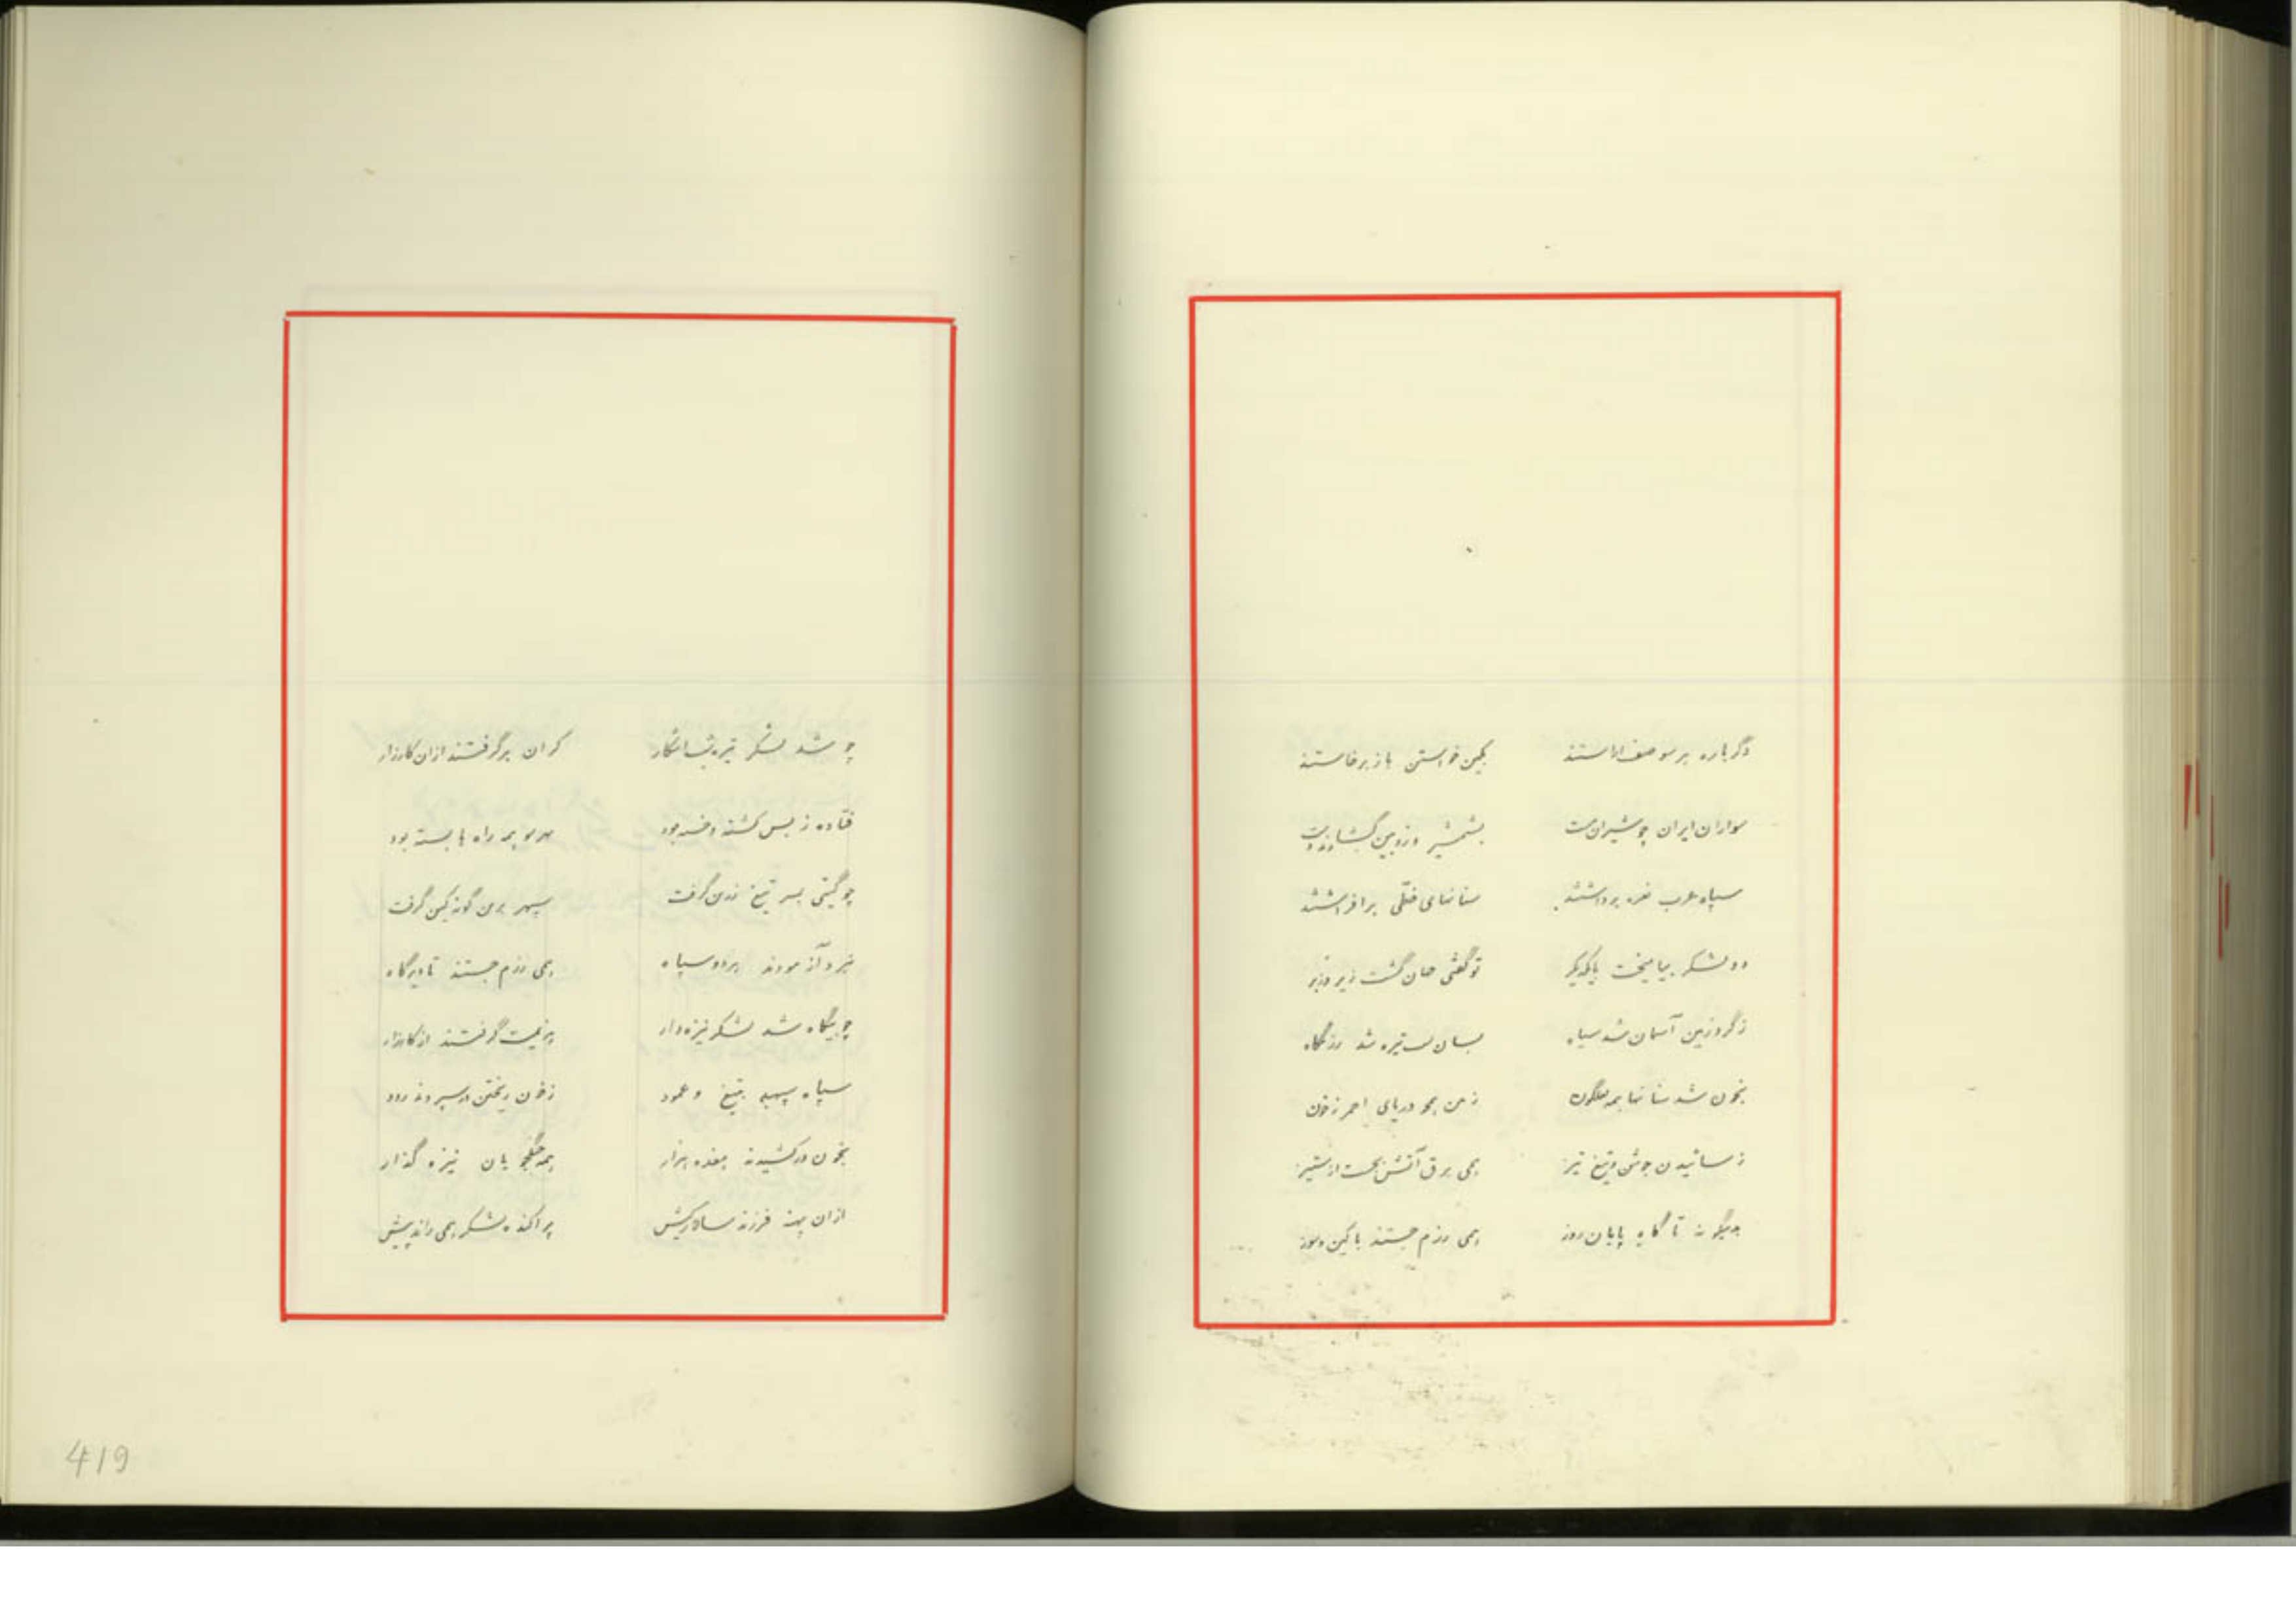 دگر باره بر سو صف آراستند بکین خواستن باز برخاستند
سواران ایران چو شیران مست بشمشیر و زوبین گشادند دست
سپاه عرب نعره برداشتند سنانهای خطی برافراشتند
دو لشکر بیامیخت با یکدگر تو گفتی جهان گشت زیر و زبر
ز گرد زمین آسمان شد سیاه بسان شب تیره شد رزمگاه
بخون شد سنانها همه لعلگون زمین همچو دریای احمر ز خون
ز سائیدن جوشن و تیغ تیز همی برق آتش بجست از ستیز
بدینگونه تا گاه پایان روز همی رزم جستند با کین و سوز
چو شد لشکر تیره شب آشکار کران برگرفتند ازان کارزار
فتاده ز بس کشته و خسته بود بهر سو همه راه ها بسته بود
چو گیتی بسر تیغ زدن گرفت سپهر برین گونه کین گرفت
نبرد آزمودند هر دو سپاه همی رزم جستند تا دیرگاه
چو بیگاه شد لشکر نیزه دار هزیمت گرفتند از کارزار
سپاه سپهبد بتیغ و عمود ز خون ریختن در سپردند رود
بخون در کشیدند هفده هزار همه جنگجویان نیزه گذار
ازان پهنه فرزند سالار کیش پراکنده لشکر همی راند پیش
419